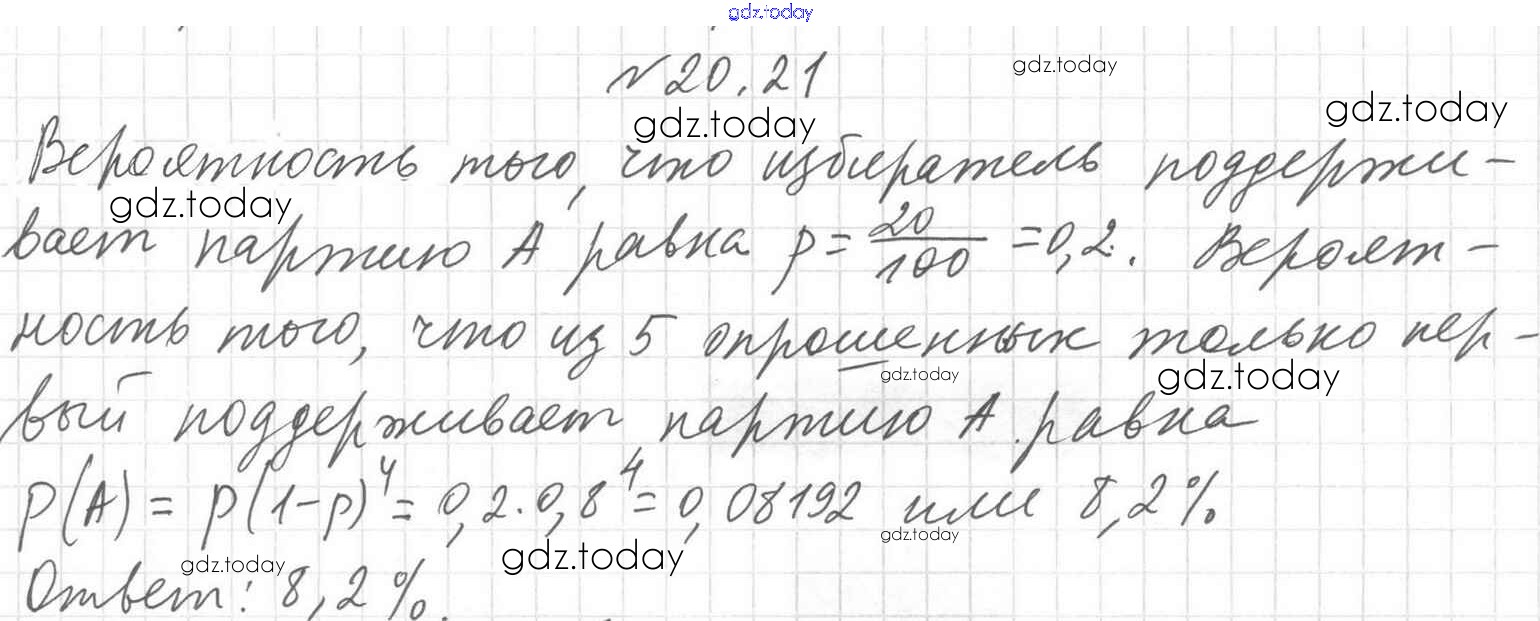 gdz.today
№ 20.21
gdz.today
gdz.today
gdz.today
Вероятность того, что избиратель поддержи-
gdz.today
вает партию А равна p = 20/100 = 0,2. Вероят-
ность того, что из 5 опрошенных только пер-
gdz.today
gdz.today
вый поддерживает партию А равна
P(A) = p(1-p)⁴ = 0,2·0,8⁴ = 0,08192 или 8,2%
gdz.today
gdz.today
gdz.today
Ответ: 8,2%.